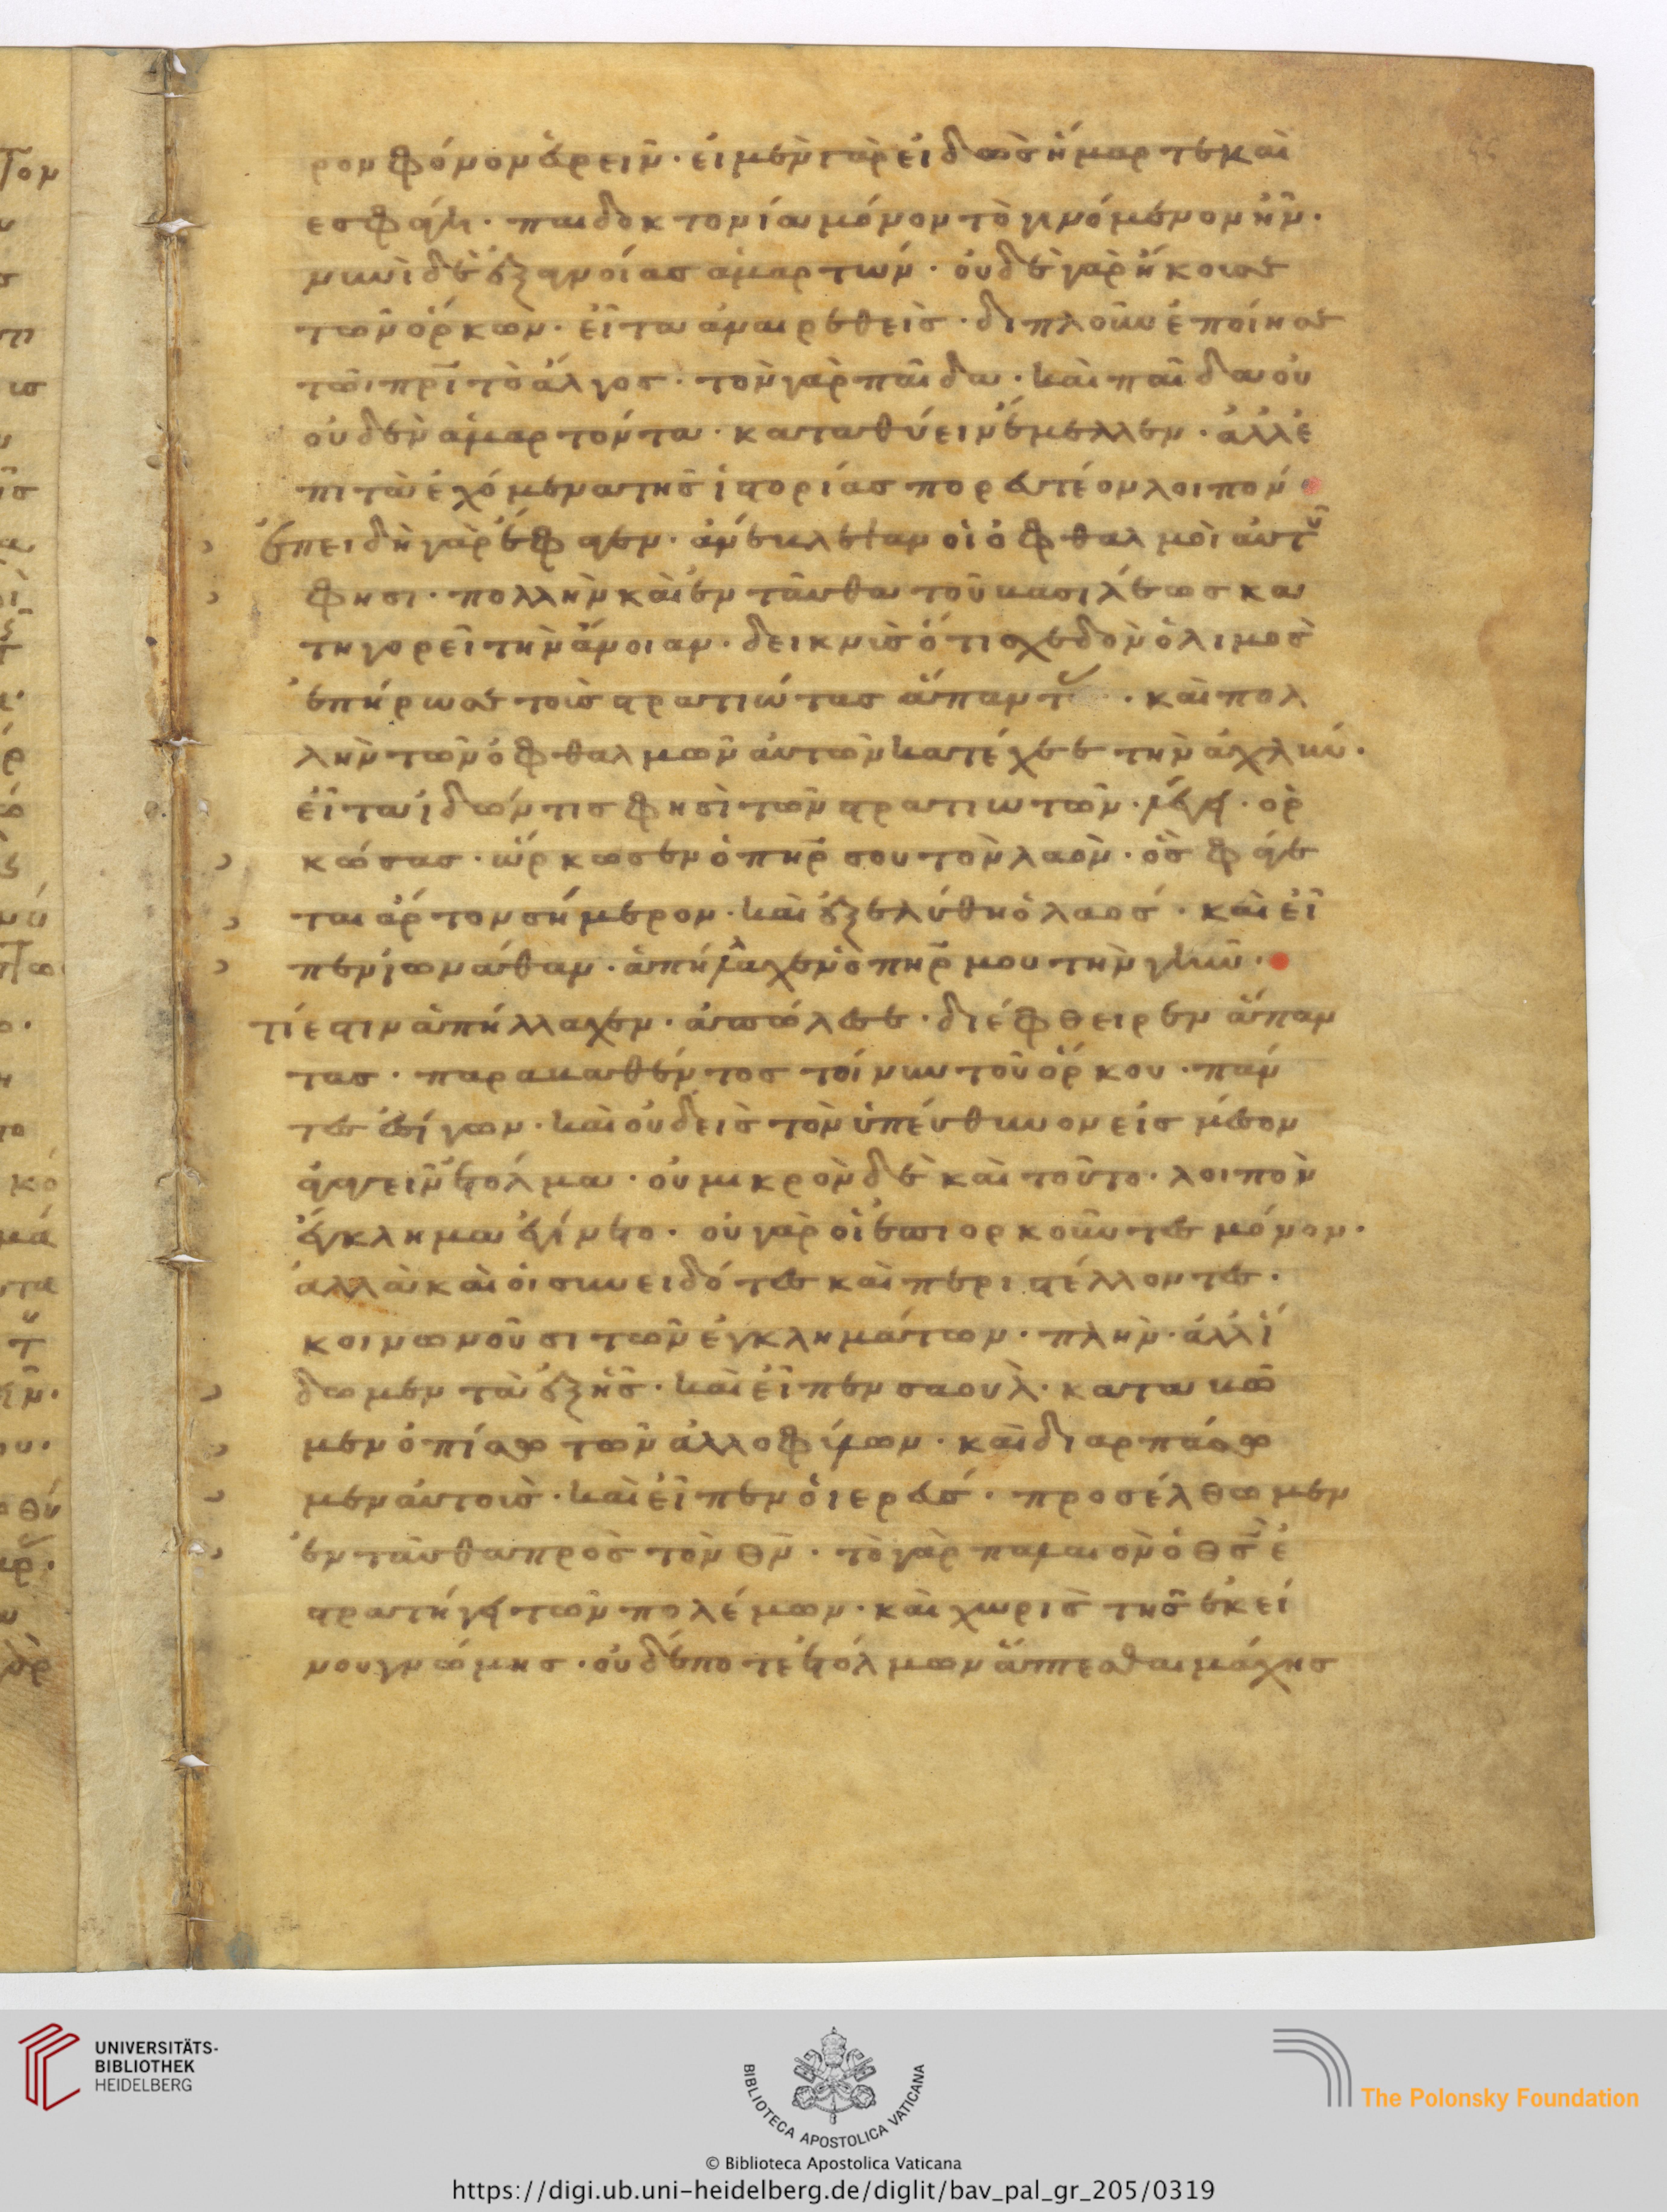 ρον φόνον εὑρεῖν· εἰ μὲν γὰρ εἰδὼς ἥμαρτε καὶ
εσφάγη· παιδοκτονία μόνον τὸ γινόμενον ἦν·
νυνὶ δὲ ἐξ ἀγνοίας ἁμαρτών· οὐδὲ γὰρ ἤκουσε
τῶν ὅρκων· εἶτα ἀναιρεθεὶς· διπλοῦν ἐποίησε
τῶι πρὶ τὸ ἄλγος· τὸν γὰρ παῖδα· καὶ παῖδα οὐ
οὐδὲν ἁμαρτόντα· καταθύειν ἔμελλεν· ἀλλ' ἐ
πὶ τὰ ἐχόμενα τῆς ἱστορίας πορευτέον λοιπόν
ἐπειδὴ γὰρ ἔφαγεν· ἀνέβλεψαν οἱ ὀφθαλμοὶ αὐτοῦ
φησι· πολλὴν καὶ ἐνταῦθα τοῦ βασιλέως κα
τηγορεῖ τὴν ἄνοιαν· δεικνὺς ὅτι σχεδὸν ὁ λιμὸς
ἐπήρωσε τοὺς στρατιώτας ἅπαντας· καὶ πολ
λὴν τῶν ὀφθαλμῶν αὐτῶν κατέχεε τὴν ἀχλύν·
εἶτα ἰδών τις φησὶ τῶν στρατιωτῶν· λέγει· ὁρ
κώσας· ὥρκωσεν ὁ πηρ σου τὸν λαὸν· ὃς φάγε
ται ἄρτον σήμερον· καὶ ἐξελύθη ὁ λαός· καὶ εἶ
πεν ἰωνάθαν· ἀπήλλαχεν ὁ πηρ μου τὴν γῆν·
τί ἐστιν ἀπήλλαχεν· ἀπώλεσε· διέφθειρεν ἅπαν
τας· παραβαθέντος τοίνυν τοῦ ὅρκου· πάν
τες ἐσίγων· καὶ οὐδεὶς τὸν ὑπεύθυνον εἰς μέσον
ἀγαγεῖν ἐτόλμα· οὐ μικρὸν δὲ καὶ τοῦτο· λοιπὸν
ἔγκλημα ἐγίνετο· οὐ γὰρ οἱ ἐπιορκοῦντες μόνον·
ἀλλὰ καὶ οἱ συνειδότες καὶ περιστέλλοντες·
κοινωνοῦσι τῶν ἐγκλημάτων· πλὴν· ἀλλ' ἴ
δωμεν τὰ ἑξῆς· καὶ εἶπεν σαουλ· καταβῶ
μεν ὀπίσω τῶν ἀλλοφύλων· καὶ διαρπάσω
μεν αὐτοὺς· καὶ εἶπεν ὁ ἱερεύς· προσέλθωμεν
ἐνταῦθα πρὸς τὸν θν· τὸ γὰρ παλαιὸν ὁ θς ἐ
στρατήγει τῶν πολέμων· καὶ χωρὶς τῆς ἐκεί
νου γνώμης· οὐδέποτε ἐτόλμων ἅπτεσθαι μάχης
UNIVERSITÄTS-
BIBLIOTHEK
HEIDELBERG
BIBLIOTECA APOSTOLICA VATICANA
The Polonsky Foundation
© Biblioteca Apostolica Vaticana
https://digi.ub.uni-heidelberg.de/diglit/bav_pal_gr_205/0319